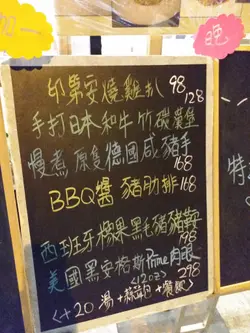 加一
晚
印第安燒雞扒 98
128
手打日本和牛竹碳漢堡
慢煮原隻德國咸豬手
168
BBQ醬豬肋排 168
西班牙橡果黑毛豬豬鞍
198
美國黑安格斯Prime肉眼
(12oz) 298
(+20 湯+蒜蓉包+餐飲)
特